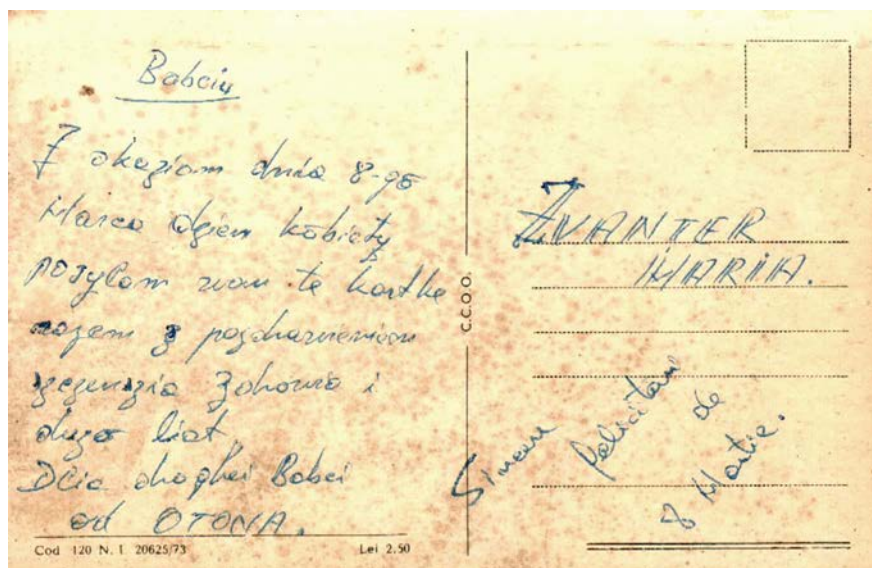 Babciu
Z okaziom dnia 8-go
Marca dzien kobiety
posylam wam te kartke
razem z pozdrawieniom
zdrowia i
dugo liat
Dlia droghei Babci
od OTONA.
Cod 120 N. I. 20625/73 Lei 2.50
C.C.O.O.
ZVANTER
MARIA.
Sincere
felicitari
de
8 Martie.